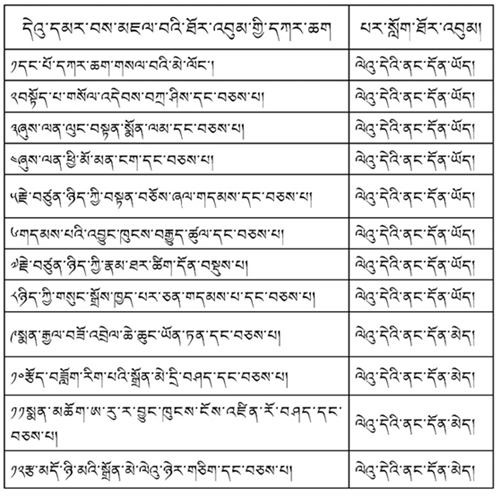 དེའུ་དམར་བས་མཛལ་བའི་ཐོར་འབུམ་གྱི་དཀར་ཆག པར་སློག་ཐོར་འབུམ།
༡དང་པོ་དཀར་ཆག་གསལ་བའི་མེ་ལོང་། ལེའུ་དེའི་ནང་དོན་ཡོད།
༢བསྟོད་པ་གསོལ་འདེབས་བཀྲ་ཤིས་དང་བཅས་པ། ལེའུ་དེའི་ནང་དོན་ཡོད།
༣ཞུས་ལན་ལུང་བསྟན་སྨོན་ལམ་དང་བཅས་པ། ལེའུ་དེའི་ནང་དོན་ཡོད།
༤ཞུས་ལན་ཕྱི་མོ་མན་ངག་དང་བཅས་པ། ལེའུ་དེའི་ནང་དོན་ཡོད།
༥རྗེ་བཙུན་ཉིད་ཀྱི་བསྟན་བཅོས་ཞལ་གདམས་དང་བཅས་པ། ལེའུ་དེའི་ནང་དོན་ཡོད།
༦གདམས་པའི་འབྱུང་ཁུངས་བརྒྱུད་ཚུལ་དང་བཅས་པ། ལེའུ་དེའི་ནང་དོན་ཡོད།
༧རྗེ་བཙུན་ཉིད་ཀྱི་རྣམ་ཐར་ཚིག་དོན་བསྡུས་པ། ལེའུ་དེའི་ནང་དོན་ཡོད།
༨ཉིད་ཀྱི་གསུང་སྒྲོས་ཁྱད་པར་ཅན་གདམས་པ་དང་བཅས་པ། ལེའུ་དེའི་ནང་དོན་ཡོད།
༩སྨན་རྒྱལ་བཟོ་འབྲེལ་ཆེ་ཆུང་ཡོན་ཏན་དང་བཅས་པ། ལེའུ་དེའི་ནང་དོན་མེད།
༡༠རྩོད་བཟློག་རིག་པའི་སྒྲོན་མེ་དྲི་བཤད་དང་བཅས་པ། ལེའུ་དེའི་ནང་དོན་མེད།
༡༡སྨན་མཆོག་ཨ་རུ་ར་བྱུང་ཁུངས་ངོས་འཛིན་རོ་བཤད་དང་ ལེའུ་དེའི་ནང་དོན་མེད།
བཅས་པ།
༡༢རྩ་མདོ་ཉི་མའི་སྒྲོན་མེ་ལེའུ་ཉེར་གཅིག་དང་བཅས་པ། ལེའུ་དེའི་ནང་དོན་མེད།